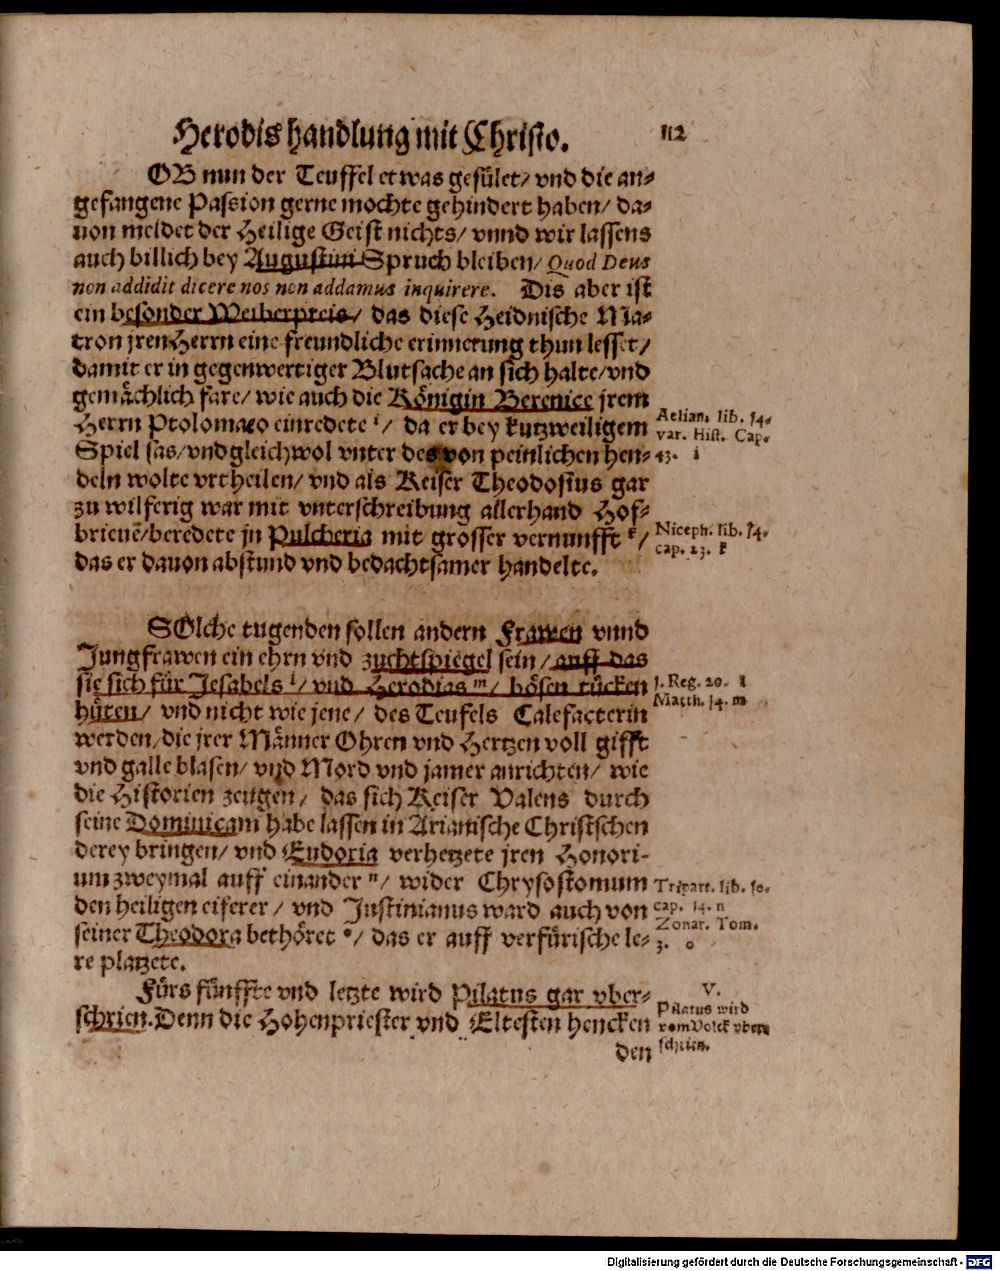 Herodis handlung mit Christo. 112
OB nun der Teuffel etwas gefület/ vnd die an-
gefangene Passion gerne mochte gehindert haben/ da-
uon meldet der Heilige Geist nichts/ vnnd wir lassens
auch billich bey Augustini Spruch bleiben/ Quod Deus
non addidit dicere nos non addamus inquirere. Dis aber ist
ein besonder Weiberpreis/ das diese Heidnische Ma-
tron jren Herrn eine freundliche erinnerung thun lesset/
damit er in gegenwertiger Blutsache an sich halte/ vnd
gemächlich fare/ wie auch die Königin Berenice jrem
Herrn Ptolomæo einredete i/ da er bey kutzweiligem
Spiel sas/ vnd gleichwol vnter des von peinlichen hen-
deln wolte vrtheilen/ vnd als Keiser Theodosius gar
zu wilferig war mit vnterschreibung allerhand Hof-
brieuē/ beredete jn Pulcheria mit grosser vernunfft k/
das er dauon abstund vnd bedachtsamer handelte.
Aelian. lib. 14.
var. Hist. Cap.
43. i
Niceph. lib. 14.
cap. 23. k
SOlche tugenden sollen andern Frawen vnnd
Jungfrawen ein ehrn vnd zuchtspiegel sein/ auff das
sie sich für Jesabels l/ vnd Herodias m/ bösen tücken
hüten/ vnd nicht wie jene/ des Teufels Calefacterin
werden/ die jrer Männer Ohren vnd Hertzen voll gifft
vnd galle blasen/ vnd Mord vnd jamer anrichten/ wie
die Historien zeugen/ das sich Keiser Valens durch
seine Dominicam habe lassen in Arianische Christschen
derey bringen/ vnd Eudoxia verhetzete jren Honori-
um zweymal auff einander n/ wider Chrysostomum
den heiligen eiferer/ vnd Justinianus ward auch von
seiner Theodora bethöret o/ das er auff verfürische le-
re platzete.
1. Reg. 20. l
Matth. 14. m
Tripart. lib. 10.
cap. 14. n
Zonar. Tom.
3. o
Fürs fünffte vnd letzte wird Pilatus gar vber-
schrien. Denn die Hohenpriester vnd Eltesten hencken
den
V.
Pilatus wird
vom Volck vber-
schrien.
Digitalisierung gefördert durch die Deutsche Forschungsgemeinschaft - DFG